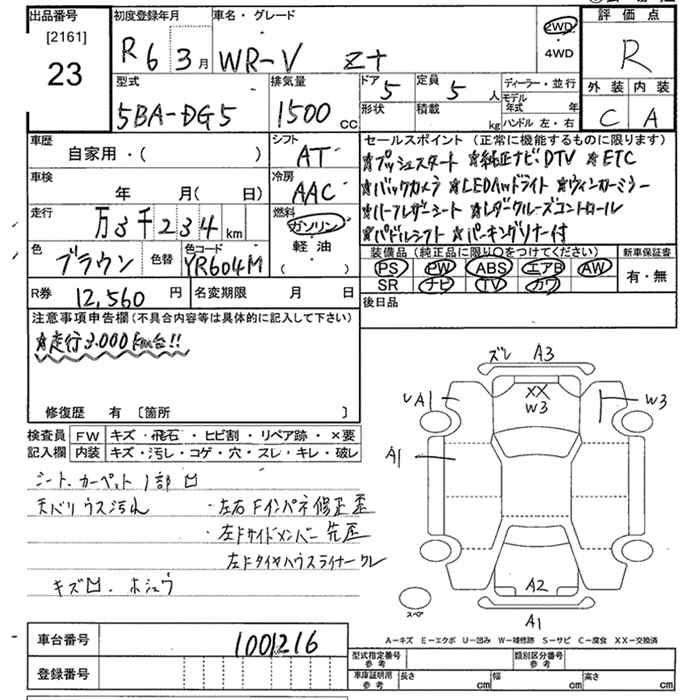 出品番号 初度登録年月 車名・グレード 評価点
[2161]
23
R 6 3月 WR-V Z+ 2WD 4WD R
型式 排気量 ドア 5 定員 5人 ディーラー・並行 外装 内装
5BA-DG5 1500cc 形状 積載 kg モデル年式 年 C A
ハンドル 左・右
車歴 シフト セールスポイント(正常に機能するものに限ります)
自家用・( ) AT ★プッシュスタート ★純正ナビDTV ★ETC
車検 冷房 ★バックカメラ ★LEDAwドライト ★ウィンカーミラー
年 月( 日) AAC ★ハーフレザーシート ★レダークルーズコントロール
走行 万3千234km 燃料 ガソリン ★パドルシフト ★パーキングソナー付
軽油
( )
色 ブラウン 色替 色コード YR604M 装備品(純正品に限り○をつけてください) 新車保証書
PS PW ABS エアB AW 有・無
SR ナビ TV カワ
R券 12,560円 名変期限 月 日 後日品
注意事項申告欄(不具合内容等は具体的に記入して下さい)
★走行3,000km台!!
修復歴 有〔箇所 〕
検査員 FW キズ・飛石・ヒビ割・リペア跡・×要
記入欄 内装 キズ・汚レ・コゲ・穴・スレ・キレ・破レ
シート、カーペット1部凹
天バリ ウス汚れ ・左右Fインパネ修正歪
・左Fサイドメンバー先歪
左Fタイヤハウスライナークレ
キズ凹、ホシュウ
ズレ A3
A1 XX W3 W3
A1
A2
スペア A1
A-キズ E-エクボ U-凹み W-補修跡 S-サビ C-腐食 XX-交換済
車台番号 1001216
型式指定番号 参考 類別区分番号 参考
登録番号 車庫証明用 参考 長さ cm 幅 cm 高さ cm